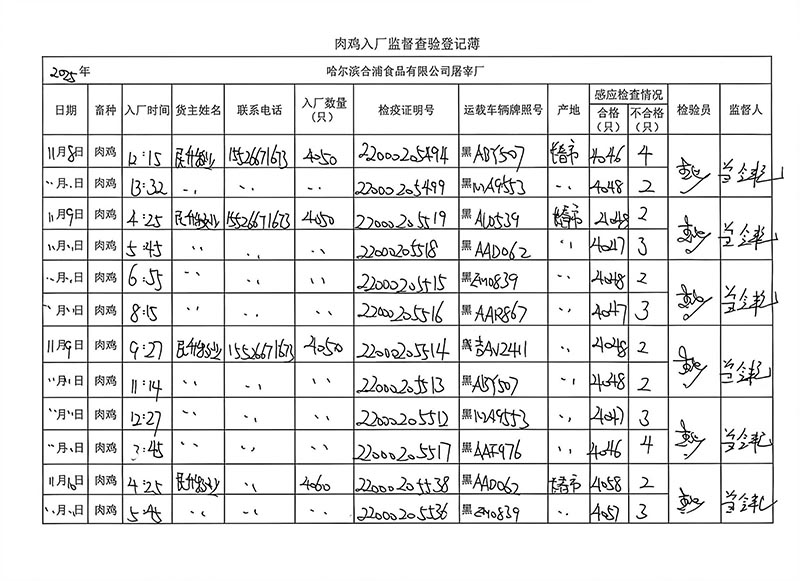 肉鸡入厂监督查验登记薄
2025年 哈尔滨合浦食品有限公司屠宰厂
日期 畜种 入厂时间 货主姓名 联系电话 入厂数量（只） 检疫证明号 运载车辆牌照号 产地 感应检查情况 合格（只） 不合格（只） 检验员 监督人
11月8日 肉鸡 12:15 15526671673 4050 22000205494 黑ABY507 长春市 4046 4
〃月〃日 肉鸡 13:32 〃 〃 22000205499 黑MA9553 〃 4048 2
11月9日 肉鸡 4:25 15526671673 4050 22000205519 长春市 4048 2
〃月〃日 肉鸡 5:45 〃 〃 22000205518 黑AAD062 〃 4047 3
〃月〃日 肉鸡 6:55 〃 〃 22000205515 黑ZM0839 〃 4048 2
〃月〃日 肉鸡 8:15 〃 〃 22000205516 黑AAR867 〃 4047 3
11月9日 肉鸡 9:27 15526671673 4050 22000205514 吉AN2411 〃 4048 2
〃月〃日 肉鸡 11:14 〃 〃 22000205513 黑ABY507 〃 4048 2
〃月〃日 肉鸡 12:27 〃 〃 22000205512 黑MA9553 〃 4047 3
〃月〃日 肉鸡 〃 〃 22000205517 黑AAF976 〃 4046 4
11月10日 肉鸡 4:25 〃 4060 22000205538 黑AAD062 长春市 4058 2
〃月〃日 肉鸡 5:45 〃 〃 22000205536 黑ZM0839 〃 4057 3